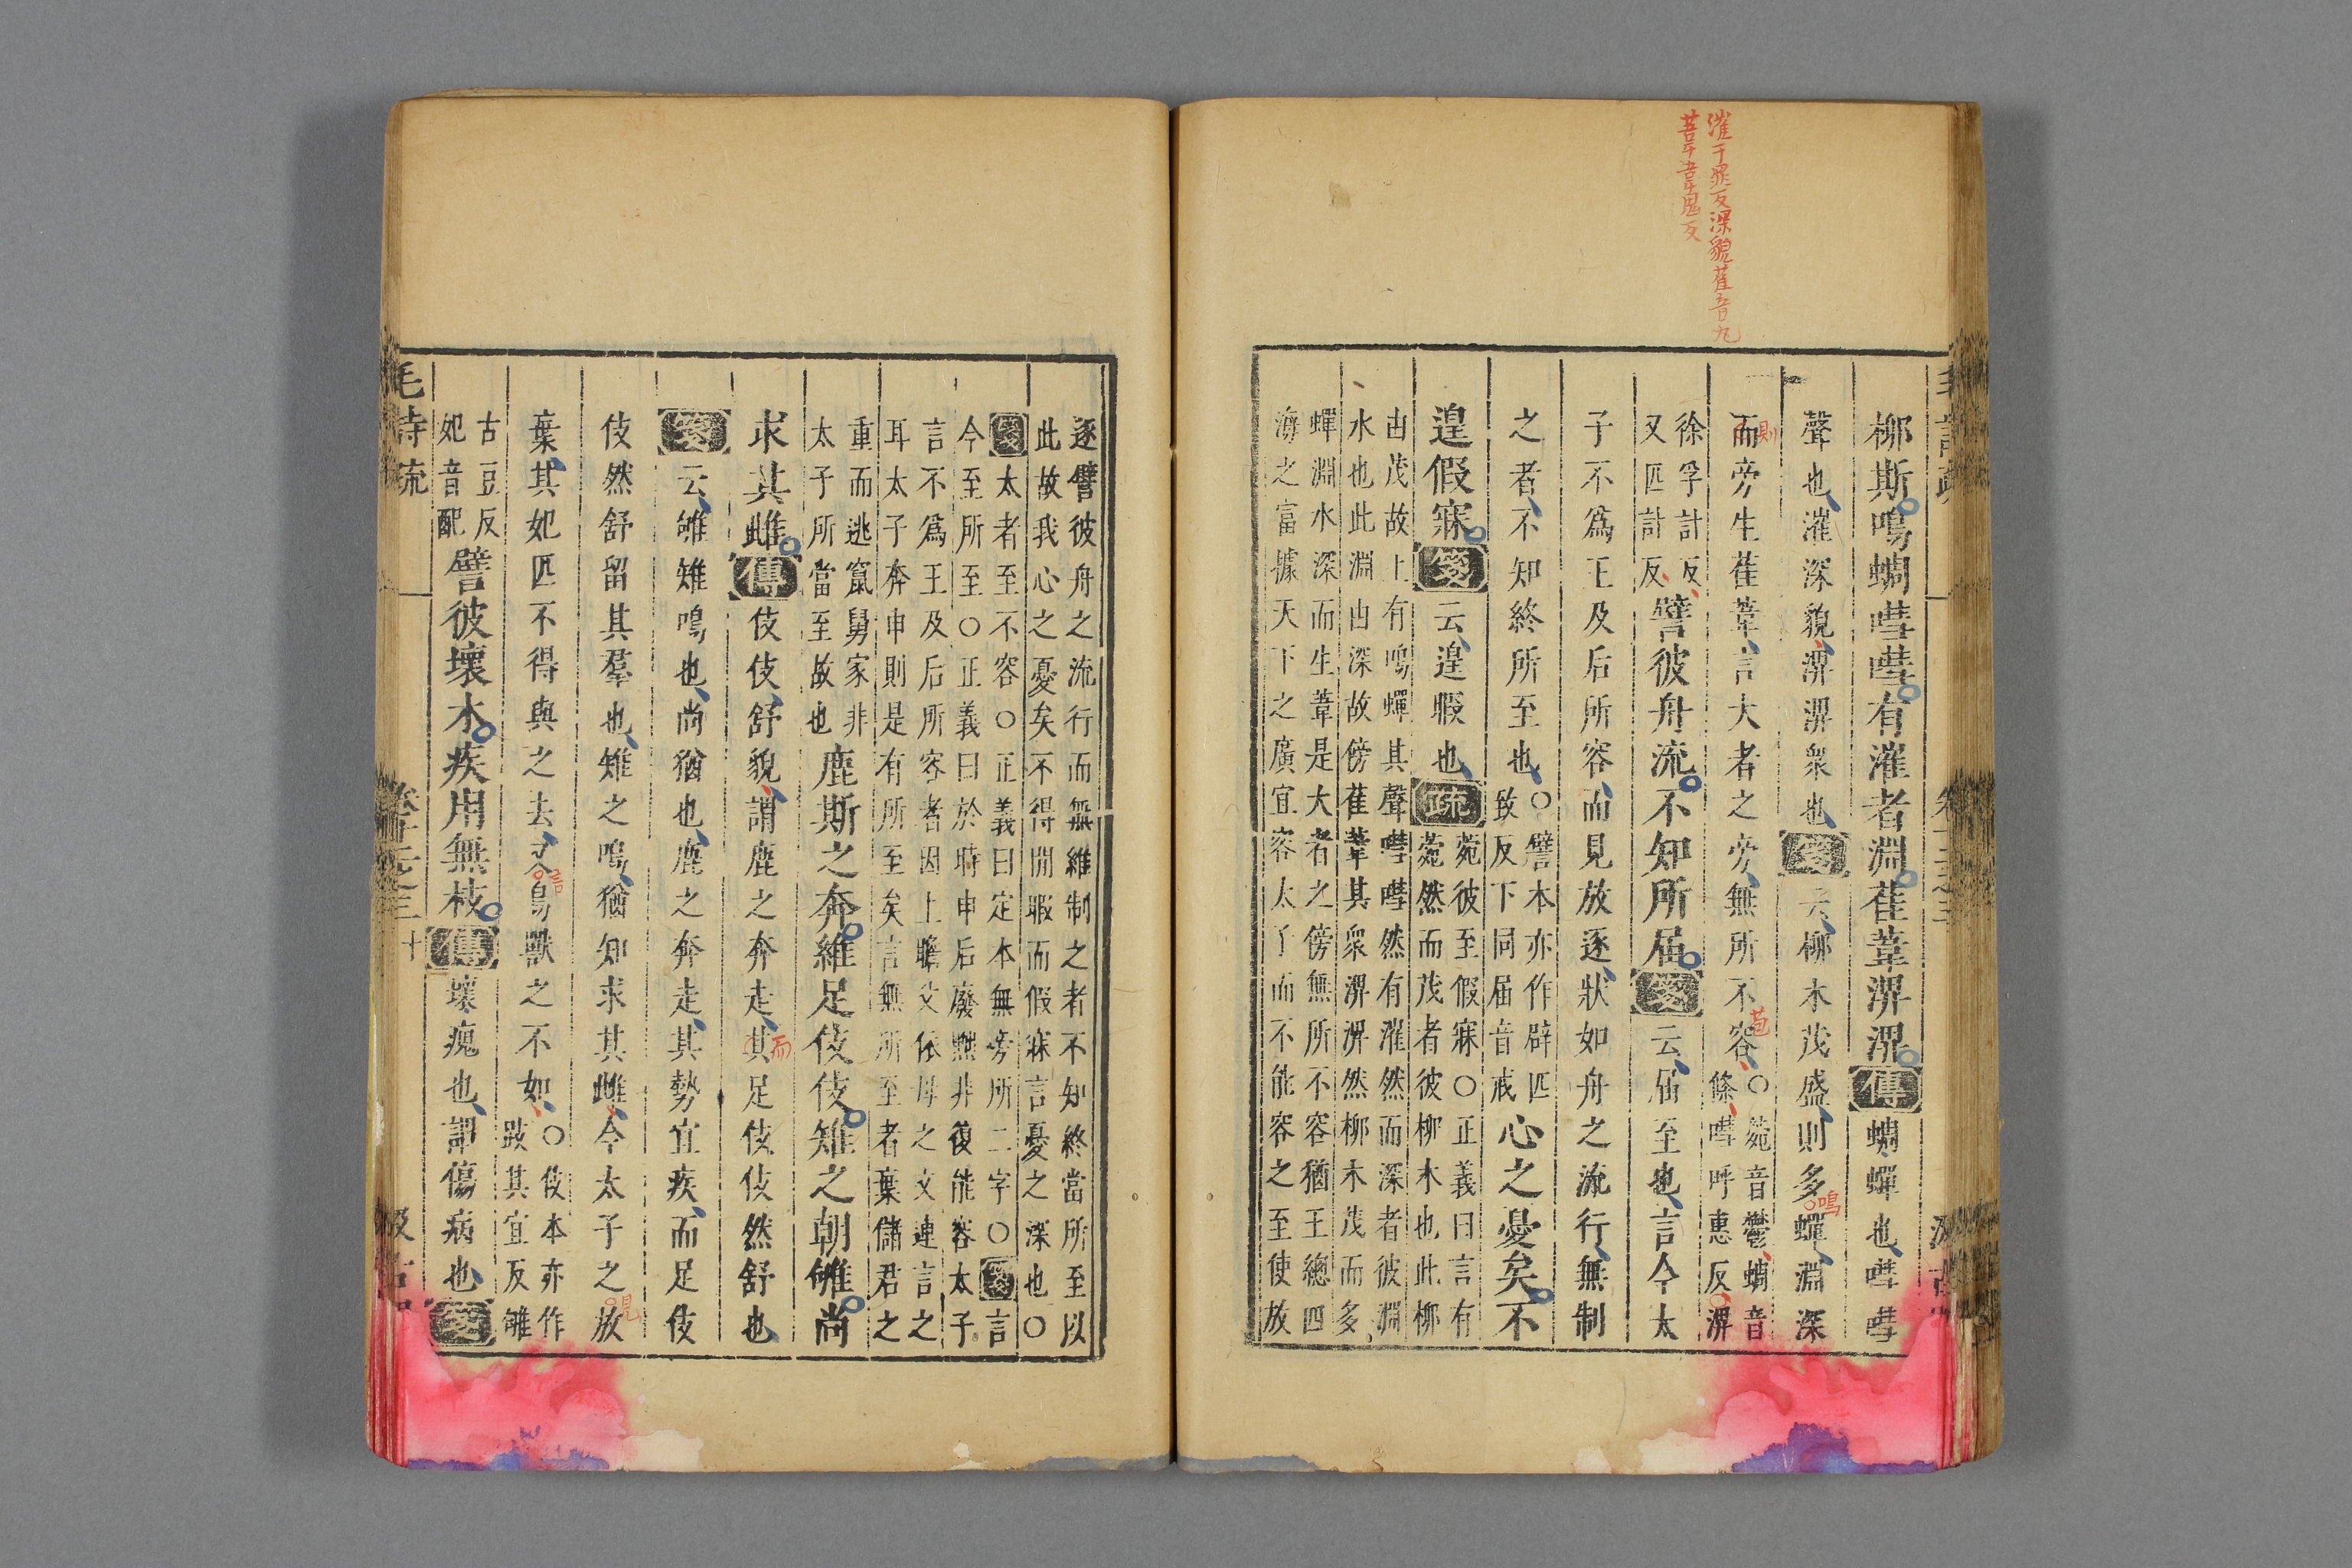 漼千罪反深貌萑音丸
葦韋鬼反
柳斯鳴蜩嘒嘒有漼者淵萑葦淠淠傳蜩蟬也嘒嘒
聲也漼深貌淠淠衆也箋云柳木茂盛則多蟬淵深
鳴
而旁生萑葦言大者之旁無所不容○菀音鬱蜩音
條嘒呼惠反淠
則
徐孚計反
又匹計反
譬彼舟流不知所屆箋云屆至也言今太
子不爲王及后所容而見放逐狀如舟之流行無制
之者不知終所至也○譬本亦作辟匹
致反下同屆音戒
心之憂矣不
遑假寐箋云遑暇也疏
菀彼至假寐○正義曰言有
菀然而茂者彼柳木也此柳
由茂故上有鳴蟬其聲嘒嘒然有漼然而深者彼淵
水也此淵由深故傍萑葦其衆淠淠然柳木茂而多
蟬淵水深而生葦是大者之傍無所不容猶王總四
海之富據天下之廣宜容太子而不能容之至使放
逐譬彼舟之流行而無維制之者不知終當所至以
此故我心之憂矣不得閒暇而假寐言憂之深也○
箋太者至不容○正義曰定本無旁所二字○箋言
今至所至○正義曰於時申后廢黜非復能容太子
言不爲王及后所容者因上瞻父依母之文連言之
耳太子奔申則是有所至矣言無所至者棄儲君之
重而逃竄舅家非
太子所當至故也
鹿斯之奔維足伎伎雉之朝雊尚
求其雌傳伎伎舒貌謂鹿之奔走其足伎伎然舒也
而
箋云雊雉鳴也尚猶也鹿之奔走其勢宜疾而足伎
伎然舒留其羣也雉之鳴猶知求其雌今太子之放
見
棄其妃匹不得與之去又鳥獸之不如○伎本亦作
跂其宜反雊
言
古豆反
妃音配
譬彼壞木疾用無枝傳壞瘣也謂傷病也箋
毛詩疏
十